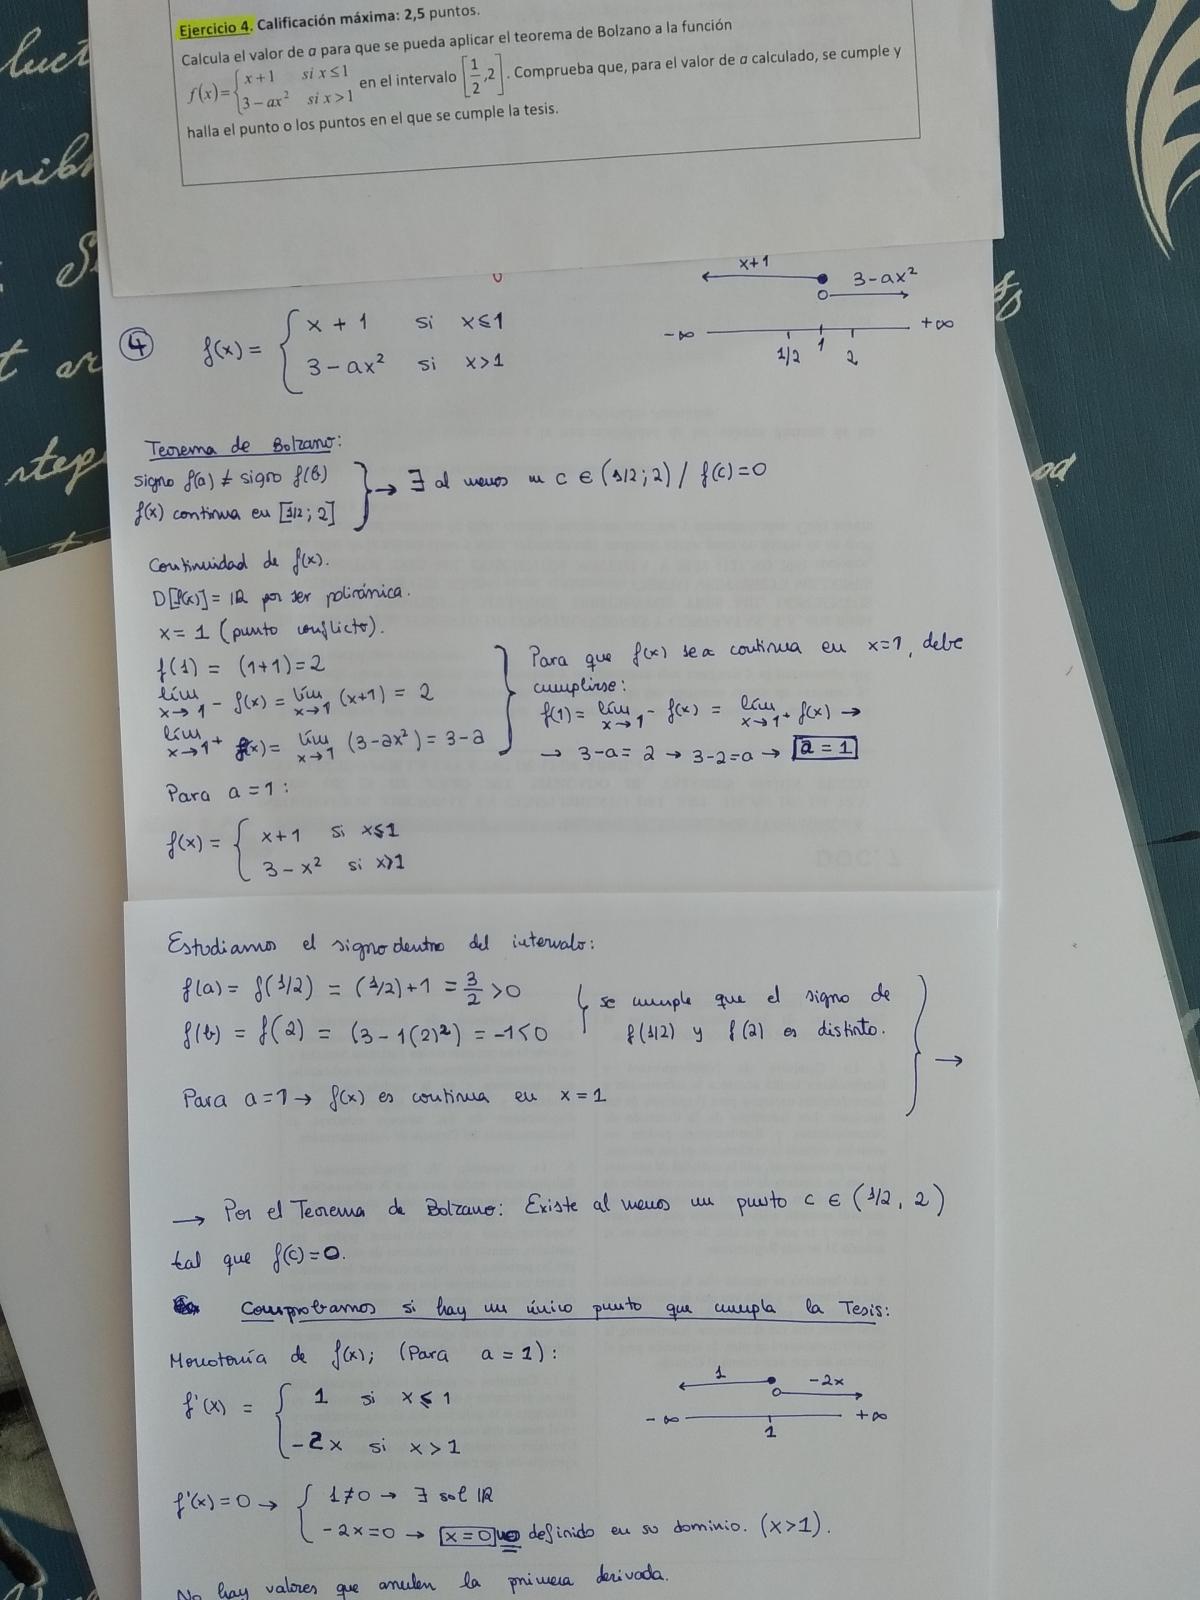 Ejercicio 4. Calificación máxima: 2,5 puntos.
Calcula el valor de a para que se pueda aplicar el teorema de Bolzano a la función
f(x)={x+1 si x≤1
3-ax² si x>1 en el intervalo [1/2,2]. Comprueba que, para el valor de a calculado, se cumple y
halla el punto o los puntos en el que se cumple la tesis.
x+1
3-ax²
-∞ +∞
1/2 1 2
4
f(x) = { x + 1 si x≤1
3-ax² si x>1
Teorema de Bolzano:
signo f(a) ≠ signo f(b)
f(x) continua en [1/2; 2] } → ∃ al menos un c ∈ (1/2; 2) / f(c)=0
Continuidad de f(x).
D[f(x)] = IR por ser polinómica.
x = 1 (punto conflicto).
f(1) = (1+1) = 2
lím x→1⁻ f(x) = lím x→1 (x+1) = 2
lím x→1⁺ f(x) = lím x→1 (3-ax²) = 3-a
Para que f(x) sea continua en x=1, debe
cumplirse:
f(1) = lím x→1⁻ f(x) = lím x→1⁺ f(x) →
→ 3-a = 2 → 3-2=a → a = 1
Para a = 1:
f(x) = { x+1 si x≤1
3-x² si x>1
Estudiamos el signo dentro del intervalo:
f(a) = f(1/2) = (1/2)+1 = 3/2 >0
f(b) = f(2) = (3-1(2)²) = -1<0
se cumple que el signo de
f(1/2) y f(2) es distinto. } →
Para a=1 → f(x) es continua en x = 1
→ Por el Teorema de Bolzano: Existe al menos un punto c ∈ (1/2, 2)
tal que f(c)=0.
Comprobamos si hay un único punto que cumpla la Tesis:
Monotonía de f(x); (Para a = 1):
f'(x) = { 1 si x≤1
-2x si x>1
1 -2x
-∞ +∞
1
f'(x)=0 → { 1≠0 → ∃ sol IR
-2x=0 → x=0 no definido en su dominio. (x>1).
No hay valores que anulen la primera derivada.